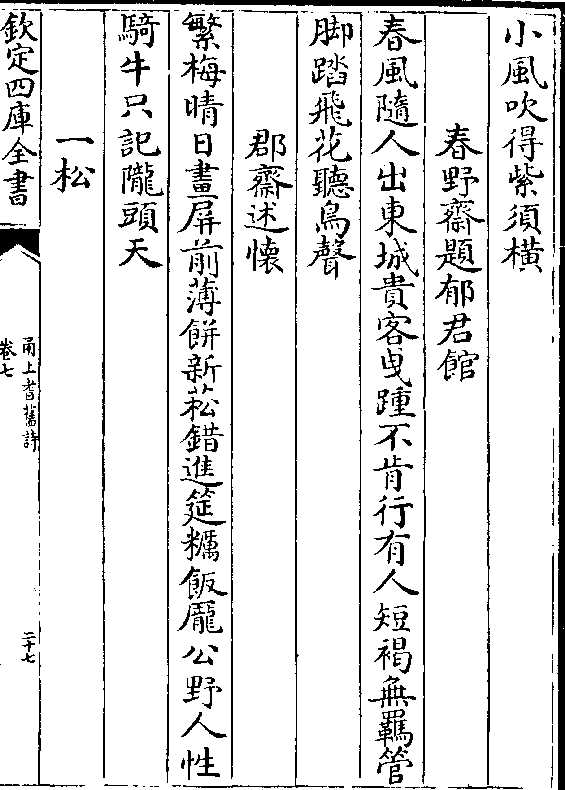 小風吹得紫須橫
春野齋題郁君館
春風隨人出東城貴客曵踵不肯行有人短褐無羈管
脚踏飛花聽鳥聲
郡齋述懷
繁梅晴日畫屏前薄餅新菘錯進筵糲飯龎公野人性
騎牛只記隴頭天
一松
欽定四庫全書
甬上耆舊詩
卷七
二十七